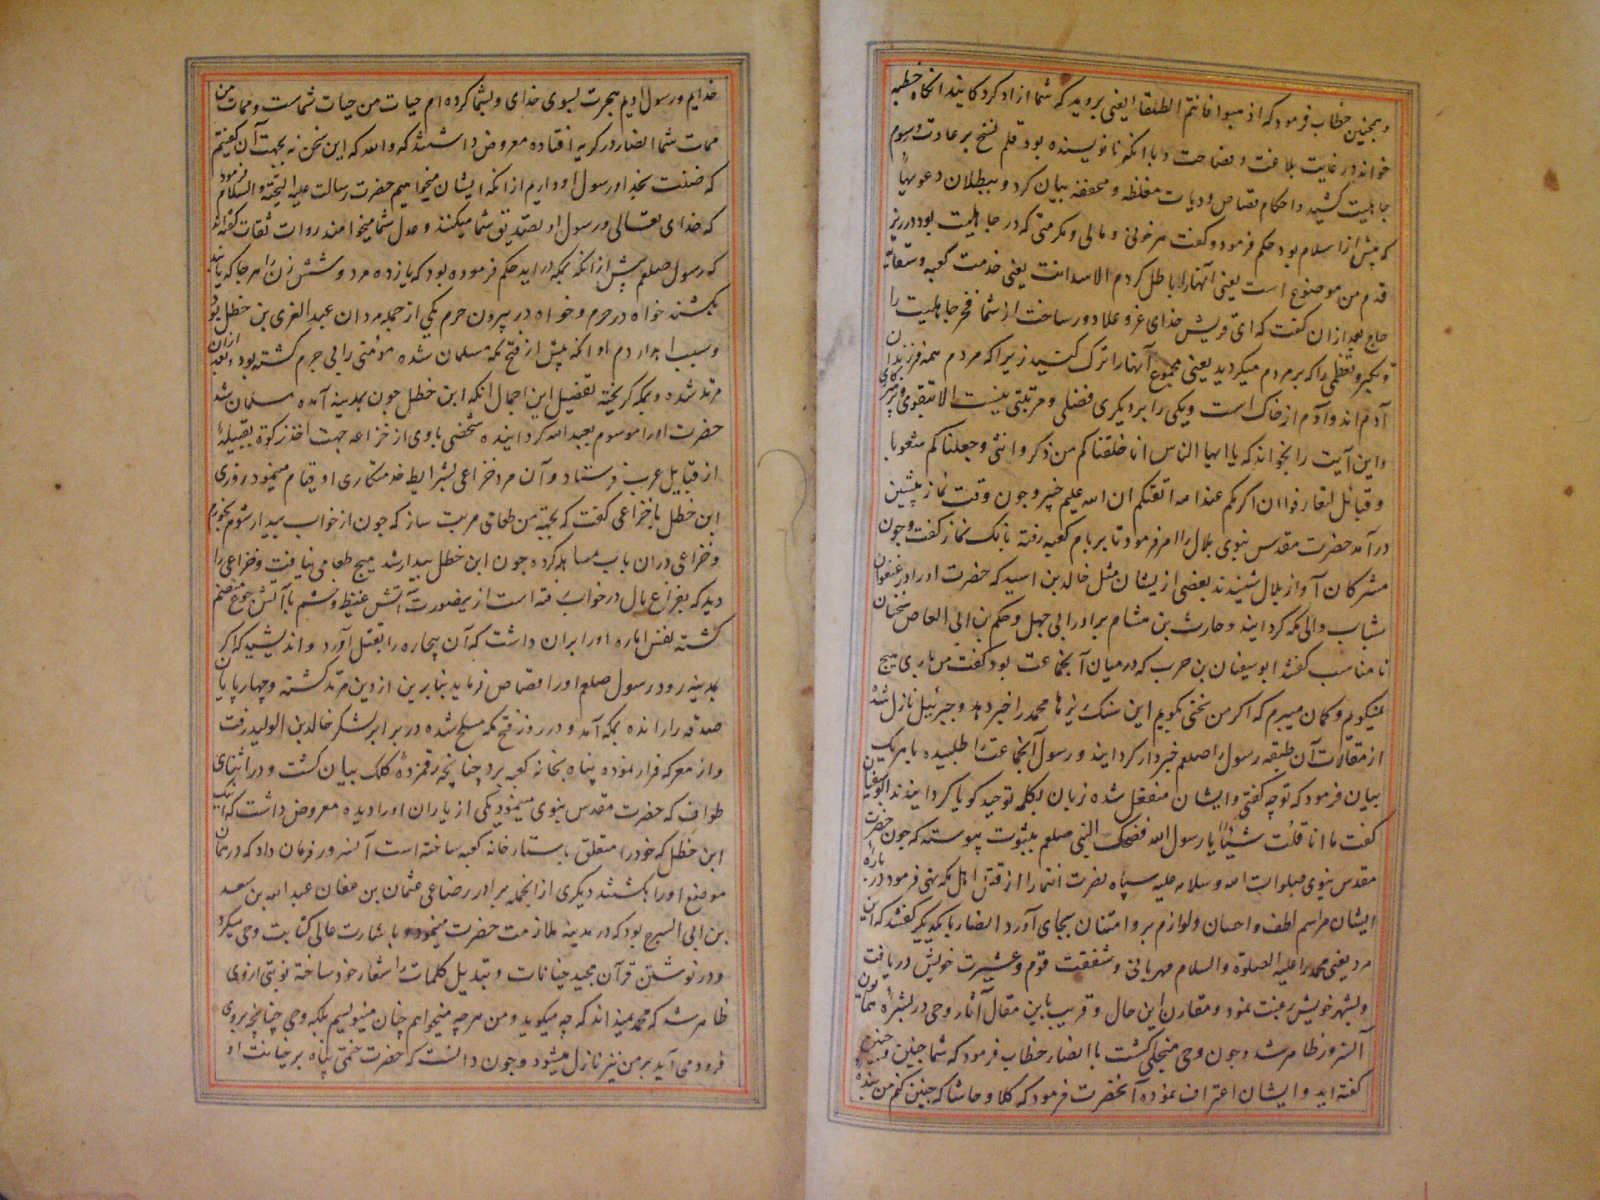 و همچنین خطاب فرمود که اذهبوا فانتم الطلقا یعنی بروید که شما ازاد کردکانید انکاه خطبه
خواند در غایت بلاغت و فصاحت و با انکه نانویسنده بود قلم نسخ بر عادت و رسوم
جاهلیت کشید و احکام قصاص و دیات مغلظه و مخففه بیان کرد و ببطلان دعویهای
که پیش از اسلام بود حکم فرمود و کفت هر خونی و مالی و مکرمتی که در جاهلیت بود در زیر
قدم من موضوع است یعنی آنهارا باطل کردم الا سدانت یعنی خدمت کعبه و سقایة
حاج بعد ازان کفت که ای قریش خدای عز و علا دور ساخت از شما فخر جاهلیت را
و تکبر و تعظمی را که بر مردم میکردید یعنی مجموع آنهارا ترک کنید زیرا که مردم همه فرزندان
آدم اند و آدم از خاک است و یکی را بر دیکری فضلی و مرتبتی نیست الا بتقوی و پرهیزکاری
و این آیت را بخواند که یا ایها الناس انا خلقناکم من ذکر و انثی و جعلناکم شعوبا
و قبائل لتعارفوا ان اکرمکم عند الله اتقیکم ان الله علیم خبیر و چون وقت نماز پیشین
درآمد حضرت مقدس نبوی بلال را امر فرمود تا بر بام کعبه رفته بانک نماز کفت و چون
مشرکان آواز بلال شنیدند بعضی از یشان مثل خالد بن اسید که حضرت اورا در عنفوان
شباب والی مکه کردانید و حارث بن هشام برادر ابی جهل و حکم بن ابی العاص سخنان
نامناسب کفتند ابوسفیان بن حرب که در میان آنجماعت بود کفت من باری هیچ
نمیکویم و کمان میبرم که اکر من سخنی بکویم این سنک ریزها محمد را خبر دهد و جبرئیل نازل شده
از مقالات آن طبقه رسول را صلعم خبردار کردانید و رسول آنجماعت را طلبیده با هریک
بیان فرمود که تو چه کفتی و ایشان منفعل شده زبان بکلمه توحید کویا کردانیدند ابوسفیان
کفت ما انا قلت شیئا یا رسول الله فضحک النبی صلعم بثبوت پیوسته که چون حضرت
مقدس نبوی صلوات الله و سلامه علیه سپاه نصرت انتما را از قتل اهل مکه نهی فرمود در باره
ایشان مراسم لطف و احسان و لوازم بر و امتنان بجای آورد انصار با یکدیکر کفتند که این
مرد یعنی محمد را علیه الصلوة والسلام مهربانی و شفقت قوم و عشیرت خویش دریافت
و بشهر خویش رغبت نمود و مقارن این حال و قریب باین مقال آثار وحی در بشره همایون
آنسرور ظاهر شد و چون وحی منجلی کشت با انصار خطاب فرمود که شما چنین و چنین
کفته اید و ایشان اعتراف نموده آنحضرت فرمود که کلا و حاشا که چنین کنم من بنده
خدایم و رسول اویم هجرت بسوی خدای و بشما کرده ام حیات من حیات شماست و ممات من
ممات شما انصار در کریه افتاده معروض داشتند که والله که این سخن نه بجهت آن کفتیم
که ضنت بخدا و رسول او داریم از انکه ایشان میخواهیم حضرت رسالت علیه التحیة والسلام فرمود
که خدای تعالی و رسول او تصدیق شما میکنند و عدل شما میخوانند روات ثقات کفته اند
که رسول صلعم پیش از انکه بمکه دراید حکم فرموده بود که یازده مرد و شش زن را هر جا که یابند
بکشند خواه در حرم و خواه در بیرون حرم یکی از جمله مردان عبد العزی بن خطل بود
و سبب اهدار دم او انکه پیش از فتح مکه مسلمان شده مؤمنی را بی جرم کشته بود و بعد ازان
مرتد شده و بمکه کریخته تفصیل این اجمال انکه ابن خطل چون بمدینه آمده مسلمان شد
حضرت اورا موسوم بعبد الله کردانیده شخصی با وی از خزاعه جهت اخذ زکوة بقبیله
از قبایل عرب فرستاد و آن مرد خزاعی بشرایط خدمتکاری او قیام مینمود روزی
ابن خطل با خزاعی کفت که بجهة من طعامی مرتب ساز که چون از خواب بیدار شوم بخورم
و خزاعی دران باب مساهله کرده چون ابن خطل بیدار شد هیچ طعامی نیافت و خزاعی را
دید که بفراغ بال در خواب رفته است از ینصورت آتش غیظ و خشم با آتش جوع منضم
کشته نفس اماره اورا بران داشت که آن بیچاره را بقتل آورد و اندیشید که اکر
بمدینه رود رسول صلعم اورا قصاص فرماید بنابرین از دین مرتد کشته و چهارپایان
صدقه را رانده بمکه آمد و در روز فتح مکه مسلح شده در برابر لشکر خالد بن الولید رفت
و از معرکه فرار نموده پناه بخانه کعبه برد چنانچه رقمزده کلک بیان کشت و در اثنای
طواف که حضرت مقدس نبوی مینمود یکی از یاران اورا دیده معروض داشت که اینک
ابن خطل که خودرا متعلق باستار خانه کعبه ساخته است آنسرور فرمان داد که در همان
موضع اورا بکشتند دیکری از انجمله برادر رضاعی عثمان بن عفان عبد الله بن سعد
بن ابی السرح بود که در مدینه ملازمت حضرت مینمود و باشارت عالی کتابت وحی میکرد
و در نوشتن قرآن مجید خیانات و تبدیل کلمات را شعار خود ساخته نوبتی ازوی
ظاهر شد که محمد نمیداند که چه میکوید و من هرچه میخواهم چنان مینویسم بلکه وحی چنانچه بروی
فرود می آید بر من نیز نازل میشود و چون دانست که حضرت ختمی پناه بر خیانت او